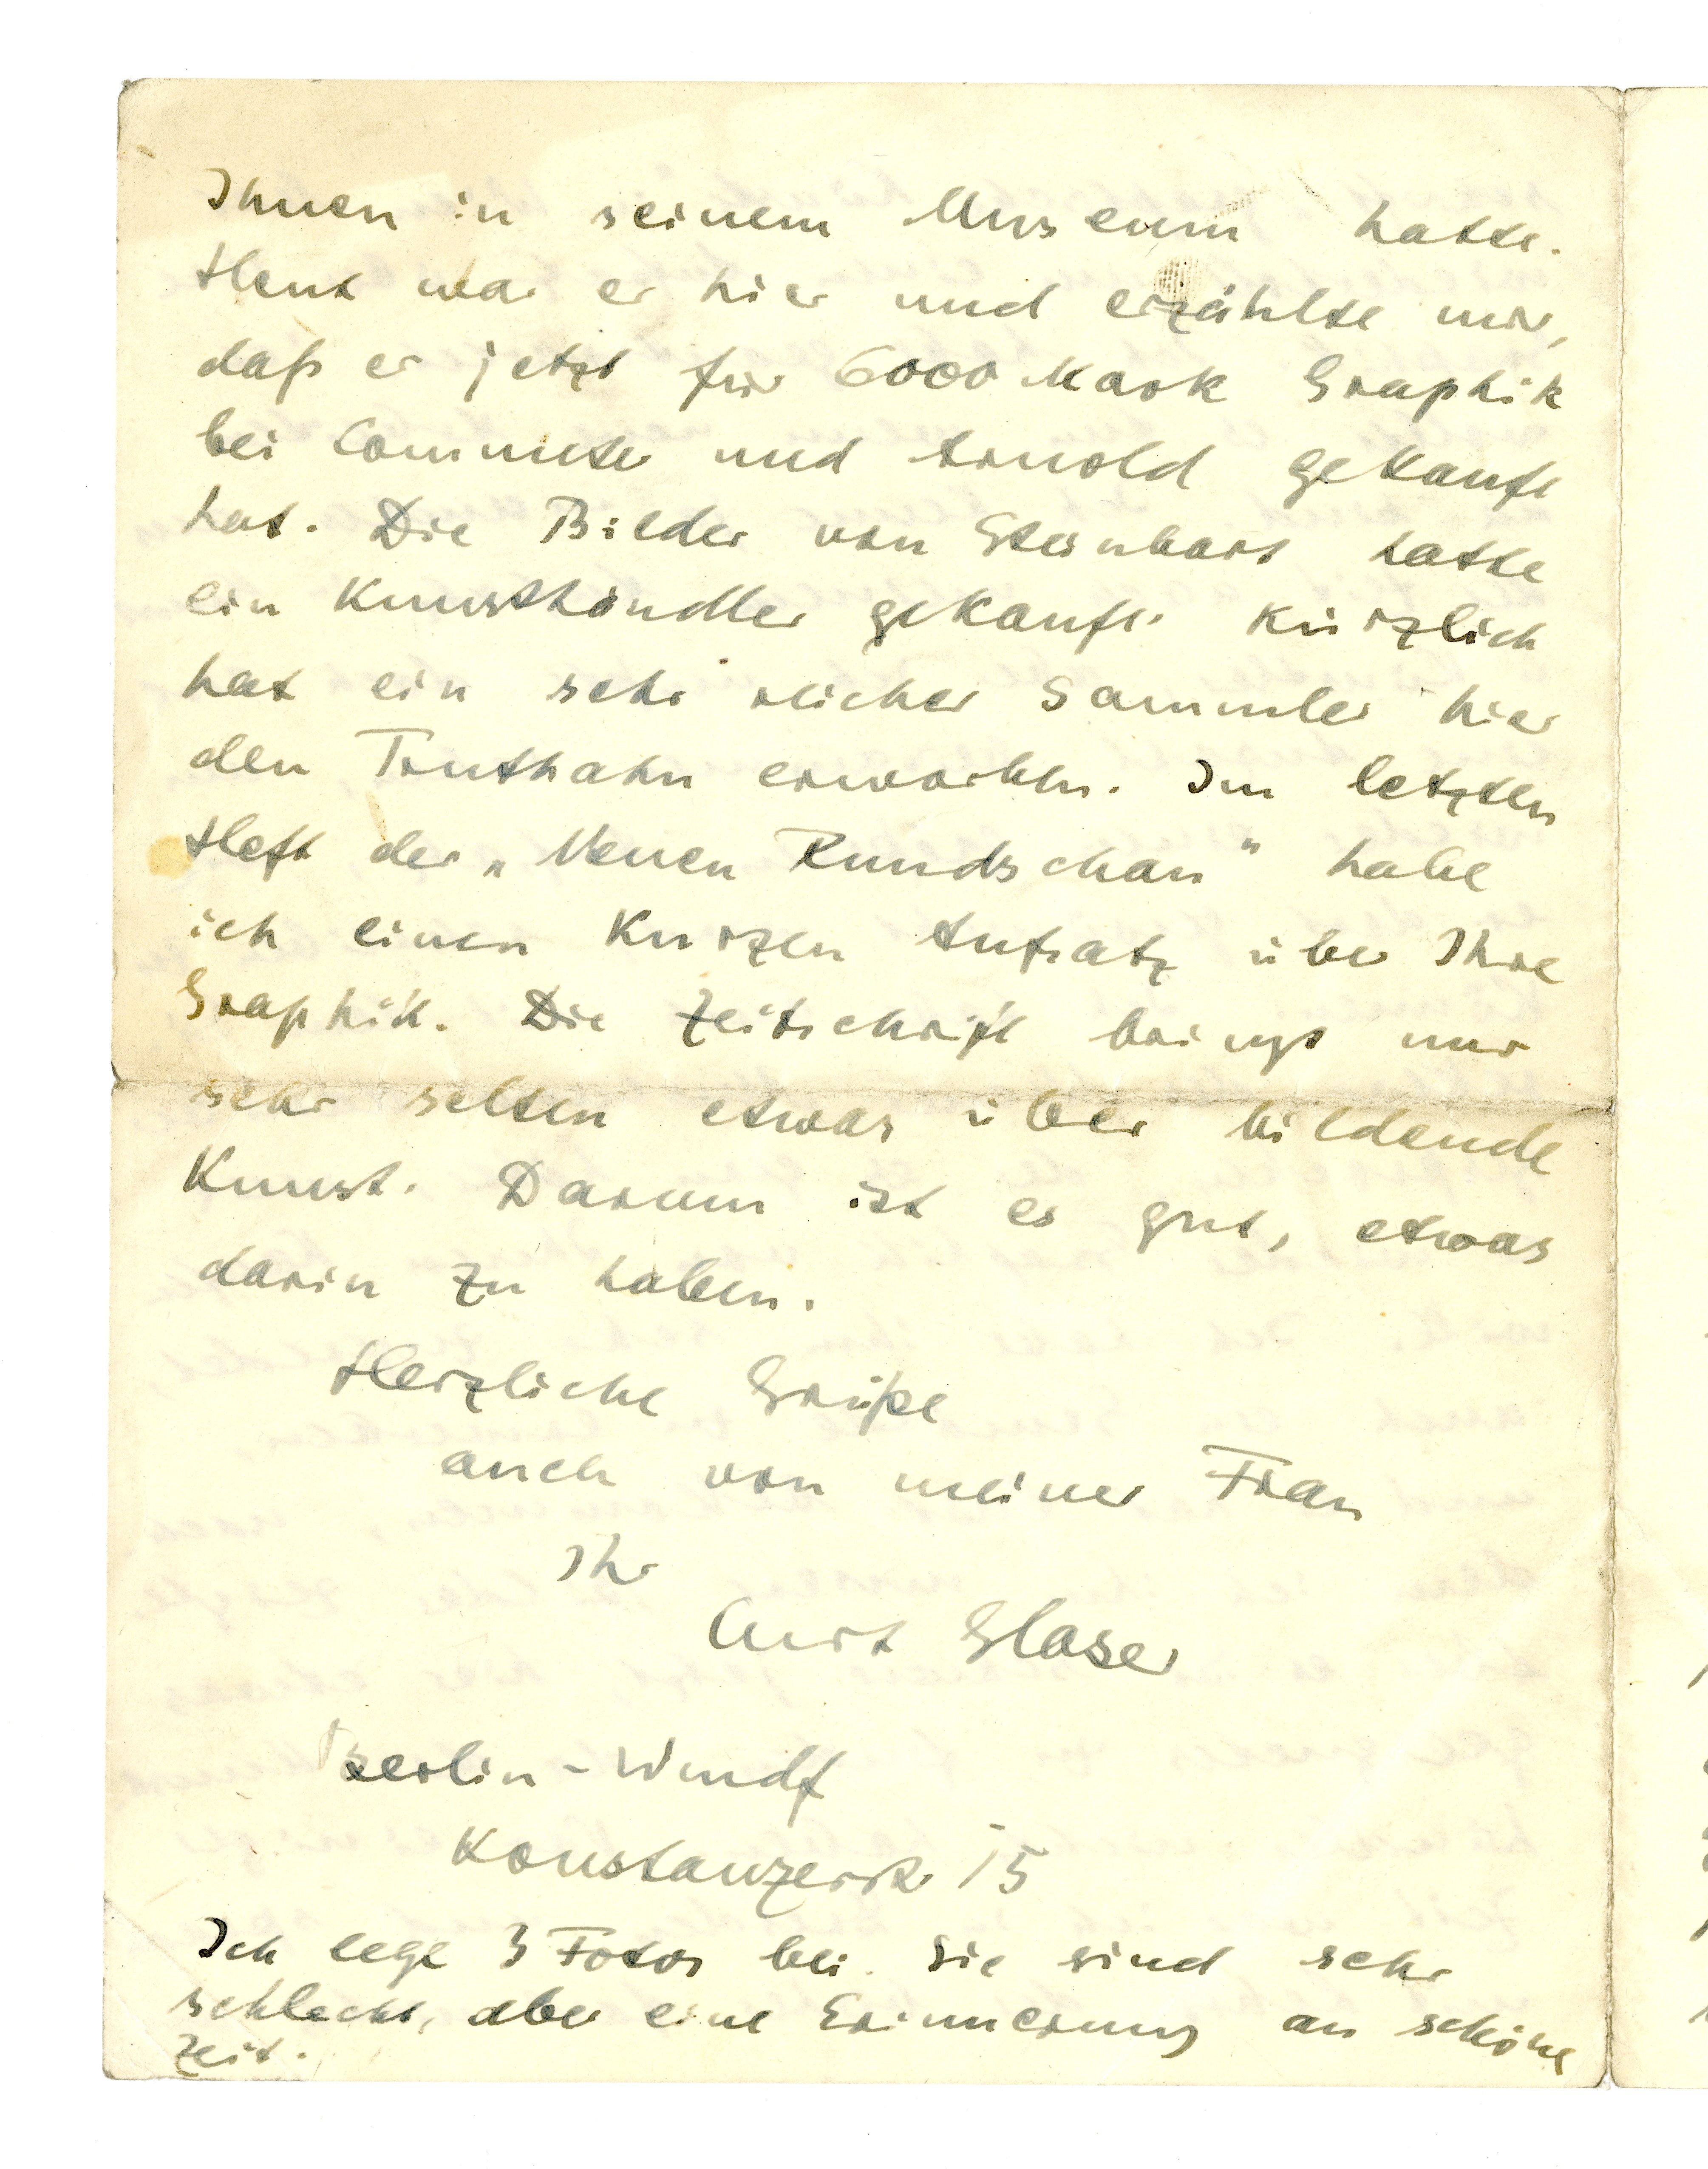 Ihnen in seinem Museum hatte.
Heut war er hier und erzählte mir,
daß er jetzt für 6000 Mark Graphik
bei Commeter und Arnold gekauft
hat. Die Bilder von Steinbart hatte
ein Kunsthändler gekauft. Kürzlich
hat ein sehr reicher Sammler hier
den Truthahn erworben. Im letzten
Heft der „Neuen Rundschau“ habe
ich einen kurzen Aufsatz über Ihre
Graphik. Die Zeitschrift bringt nur
sehr selten etwas über bildende
Kunst. Darum ist es gut, etwas
darin zu haben.
Herzliche Grüße
auch von meiner Frau
Ihr
Curt Glaser
Berlin-Wmdf
Konstanzerstr 15
Ich lege 3 Fotos bei. Sie sind sehr
schlecht, aber eine Erinnerung an schöne
Zeit.